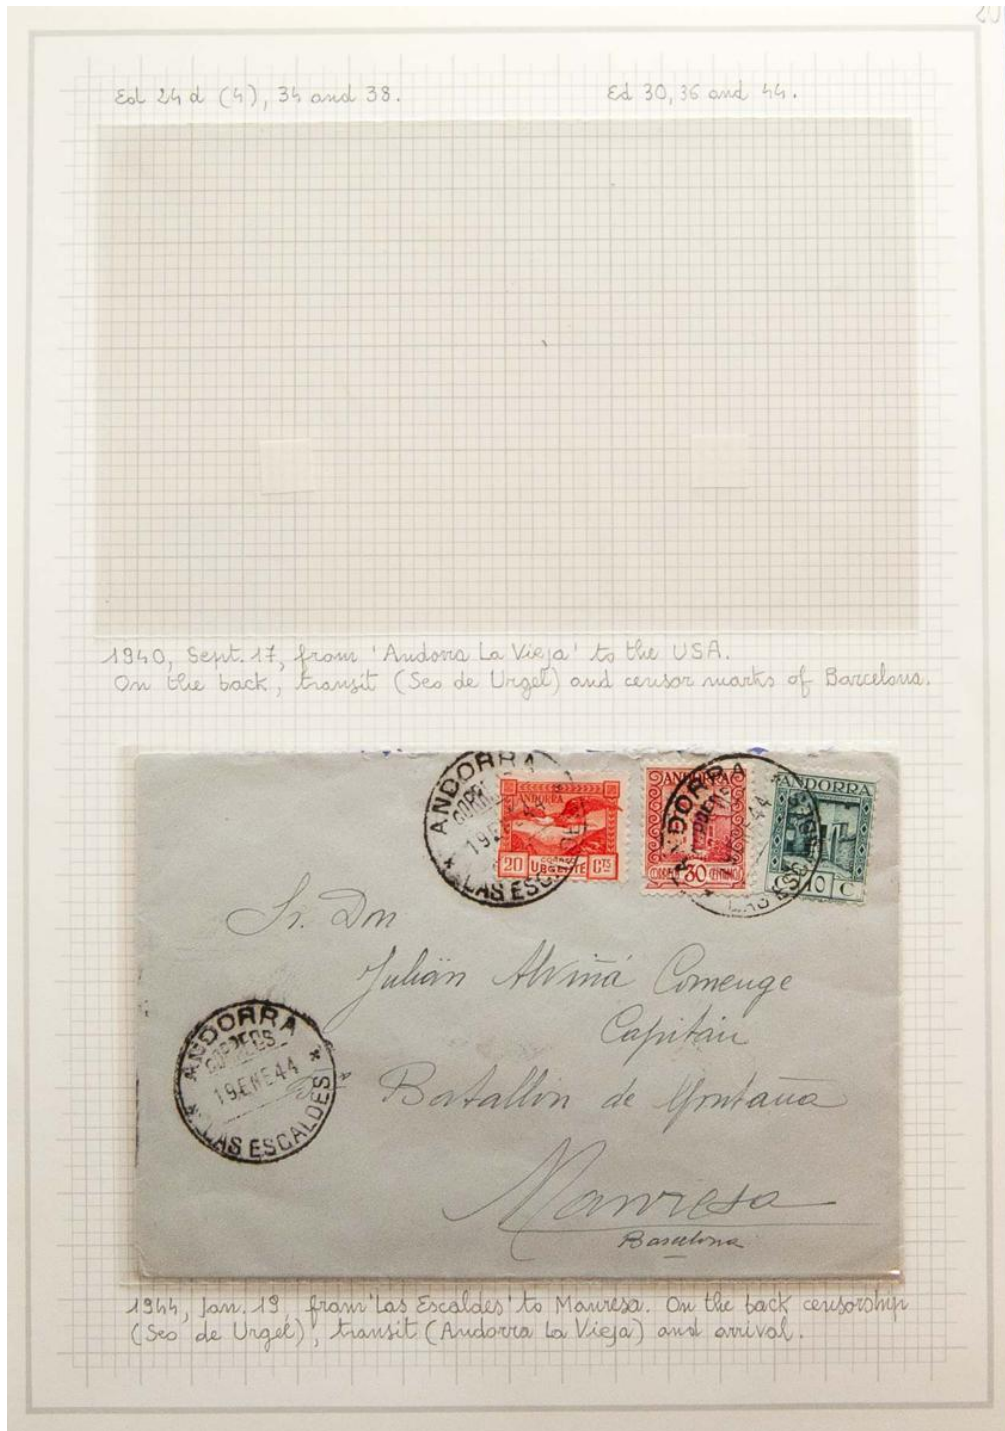 20
Ed 24 d (4), 34 and 38.
Ed 30, 36 and 44.
1940, Sept. 17, from 'Andorra La Vieja' to the USA.
On the back, transit (Seo de Urgel) and censor marks of Barcelona.
ANDORRA
CORREOS
19 ENE 44
LAS ESCALDES
ANDORRA
CORREO
URGENTE
20 CTS
ANDORRA
CORREOS 30 CENTIMOS
ANDORRA
10 C
ANDORRA
LAS ESCALDES
Sr. Don
Julián Alviñá Comenge
Capitán
Batallón de Montaña
Manresa
Barcelona
ANDORRA
CORREOS
19 ENE 44
LAS ESCALDES
1944, Jan. 19, from 'Las Escaldes' to Manresa. On the back censorship
(Seo de Urgel), transit (Andorra La Vieja) and arrival.